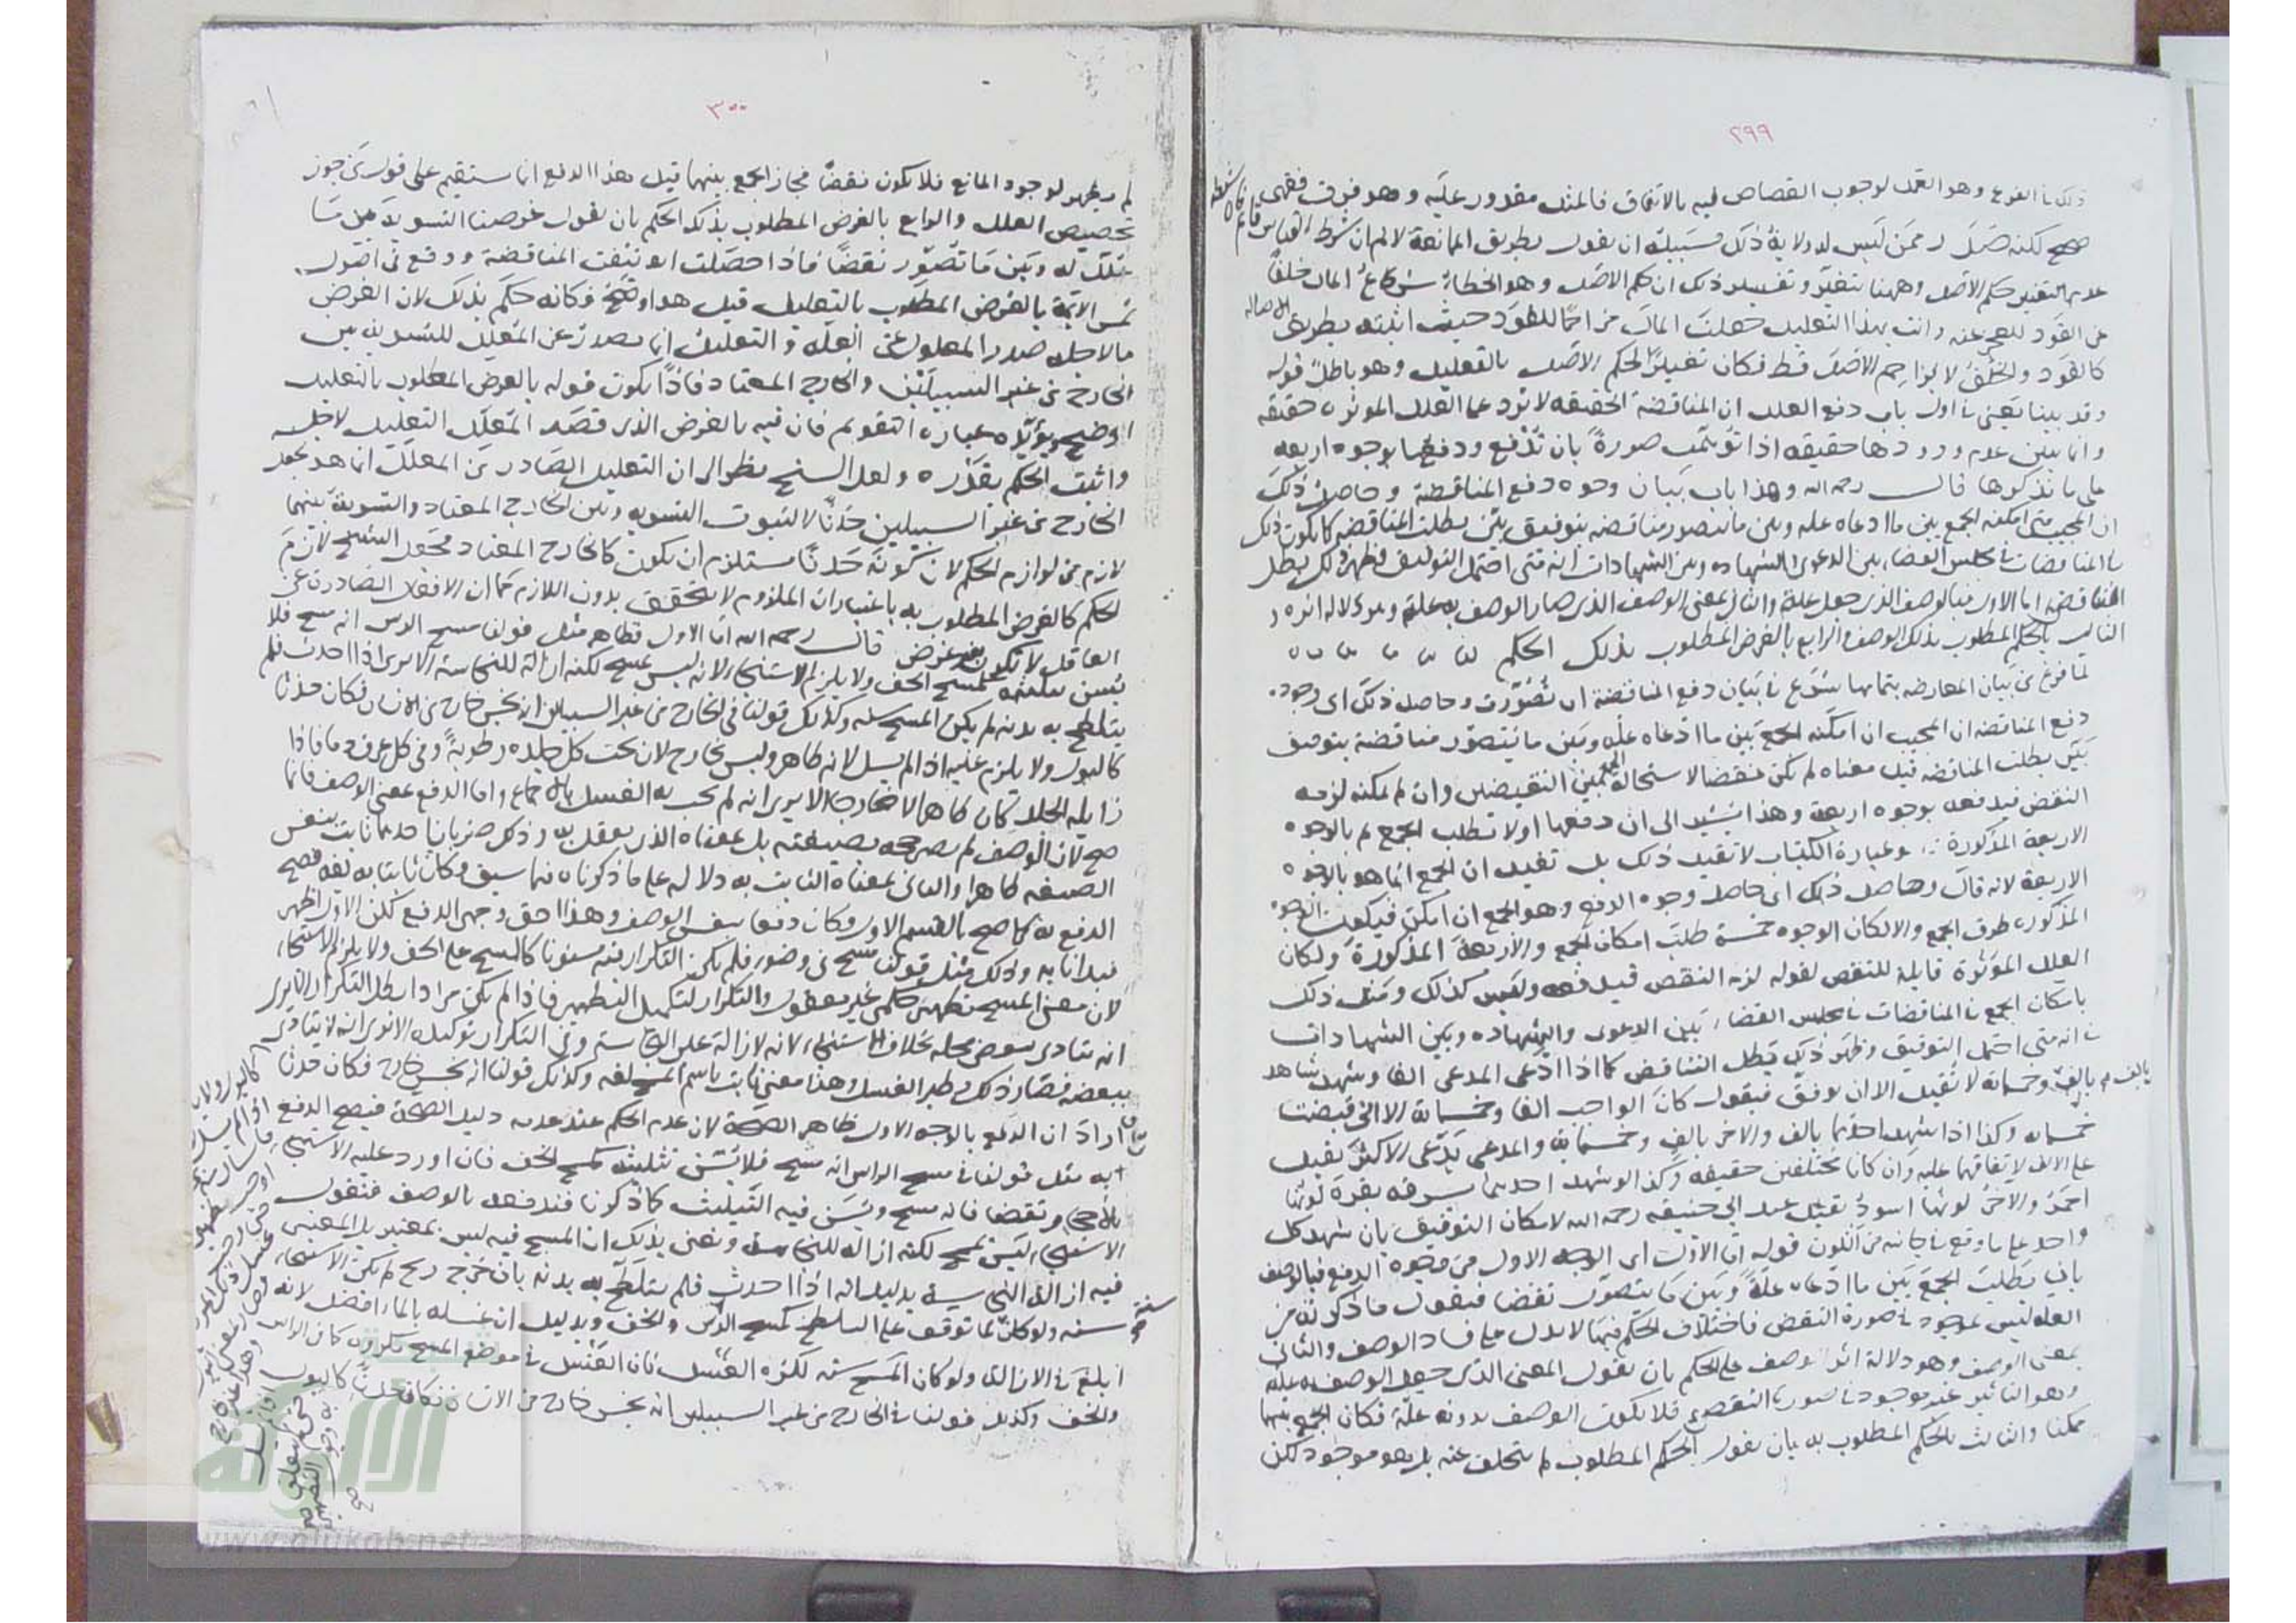 ٢٩٩
ذلك في الفرع وهو العمد لوجوب القصاص فيه بالاتفاق فالمثل مقدور عليه وهو فرق فقهى
صحيح لكنه صدر ممن ليس له ولاية ذلك فسبيله ان يقول بطريق الممانعة لا نم ان شرط القياس
عدم التغيير حكم الاصل وههنا تغير وتفسير ذلك ان حكم الاصل وهو الخطأ شرع المال خلفا
عن القود للعجز عنه وانت بهذا التعليل جعلت المال مزاحما للقود حيث اثبته بطريق
كالقود والخلف لا يزاحم الاصل قط فكان تغييرا لحكم الاصل بالتعليل وهو باطل قوله
وقد بينا يعنى في اول باب دفع العلل ان المناقضة الحقيقه لا ترد على العلل المؤثرة حقيقه
وانما يبين عدم ورودها حقيقه اذا توهمت صورة بان تدفع ودفعها بوجوه اربعه
على ما نذكرها قال رحمه الله وهذا باب بيان وجوه دفع المناقضة وحاصل ذلك
ان المجيب متى امكنه الجمع بين ما ادعاه علة وبين ما يتصور مناقضه بتوفيق بين بطلت المناقضه كما يكون ذلك
في المناقضات في مجلس القضاء بين الدعوى والشهاده وبين الشهادات انه متى احتمل التوفيق وظهر ذلك بطل
التناقض اما الاول فبالوصف الذى جعل علة والثانى بمعنى الوصف الذى صار الوصف به علة وهو دلالة اثره و
الثالث بالحكم المطلوب بذلك الوصف والرابع بالغرض المطلوب بذلك الحكم
لما فرغ من بيان المعارضه بتمامها شرع في بيان دفع المناقضة ان تصورت وحاصل ذلك اى وجوه
دفع المناقضه ان المجيب ان امكنه الجمع بين ما ادعاه علة وبين ما يتصور مناقضة بتوفيق
بين بطلت المناقضه قيل معناه لم تكن نقضا لاستحالة الجمع بين النقيضين وان لم يمكنه لزمه
النقض فيدفعه بوجوه اربعة وهذا يشير الى ان دفعها اولا تطلب الجمع ثم بالوجوه
الاربعة المذكورة وعبارة الكتاب لا تفيد ذلك بل تفيد ان الجمع انما هو بالوجوه
الاربعة لانه قال وحاصل ذلك اى حاصل وجوه الدفع وهو الجمع ان امكن فيكون الوجوه
المذكوره طرق الجمع والا لكان الوجوه خمسة طلب امكان الجمع والاربعة المذكورة ولكان
العلل المؤثرة قابلة للنقض لقوله لزمه النقض فيدفعه وليس كذلك ومثل ذلك
بامكان الجمع في المناقضات في مجلس القضاء بين الدعوى والشهاده وبين الشهادات
في انه متى احتمل التوفيق وظهر ذلك بطل التناقض كما اذا ادعى المدعى الفا وشهد شاهد
بالف وخمسمائة لا تقبل الا ان يوفق فيقول كان الواجب الفا وخمسمائة الا انى قبضت
خمسمائه وكذا اذا شهد احدهما بالف والاخر بالف وخمسمائة والمدعى يدعى الاكثر يقبل
على الالف لاتفاقهما عليه وان كانا مختلفين حقيقه وكذا لو شهد احدهما بسرقه بقرة لونها
احمر والاخر لونها اسود تقبل عند ابى حنيفه رحمه الله لامكان التوفيق بان شهد كل
واحد على ما وقع في جانبه من اللون قوله اما الاول اى الوجه الاول من وجوه الدفع فبالوصف
بان يطلب الجمع بين ما ادعاه علة وبين ما يتصور نقضا فيقول ما ذكرته من
العله ليس بموجود في صورة النقض فاختلاف الحكم فيها لا يدل على فساد الوصف والثانى
بمعنى الوصف وهو دلالة اثر الوصف على الحكم بان يقول المعنى الذى جعل الوصف به علة
وهو التأثير غير موجود في صورة النقض فلا يكون الوصف بدونه علة فكان الجمع بينهما
ممكنا والثالث بالحكم المطلوب به بان يقول الحكم المطلوب لم يتخلف عنه بل هو موجود لكن
٣٠٠
لم يظهر لوجود المانع فلا يكون نقضا فجاز الجمع بينهما قيل هذا الدفع انما يستقيم على قول من جوز
تخصيص العلل والرابع بالغرض المطلوب بذلك الحكم بان يقول غرضنا التسوية بين ما
علل له وبين ما تصور نقضا فاذا حصلت انتفت المناقضة ووقع في اصول
شمس الائمة بالغرض المطلوب بالتعليل قيل هذا اوضح وكانه حكم بذلك لان الغرض
ما لاجله صدر المعلول عن العلة والتعليل انما يصدر عن المعلل للتسوية بين
الخارج من غير السبيلين والخارج المعتاد فاذا يكون قوله بالغرض المطلوب بالتعليل
اوضح ويؤيده عبارة التقويم فان فيه بالغرض الذى قصد المعلل التعليل لاجله
واثبت الحكم بقدره ولعل الشيخ نظر الى ان التعليل الصادر من المعلل انما هو بجعل
الخارج من غير السبيلين حدثا لا لثبوت التسويه وبين الخارج المعتاد والتسوية بينهما
لازم من لوازم الحكم لان كونه حدثا مستلزم ان يكون كالخارج المعتاد فجعل الشيخ لازم
الحكم كالغرض المطلوب به باعتبار ان الملزوم لا يتحقق بدون اللازم كما ان الافعال الصادرة عن
العاقل لا تكون بغير غرض قال رحمه الله اما الاول فظاهر مثل قولنا مسح الرأس انه مسح فلا
يسن تثليثه كمسح الخف ولا يلزم الاستنجاء لانه ليس بمسح لكنه ازالة للنجاسة الا يرى اذا احدث فلم
يتلطخ به بدنه لم يكن المسح سنه وكذلك قولنا في الخارج من غير السبيلين انه نجس خارج من الانسان فكان حدثا
كالبول ولا يلزم عليه اذا لم يسل لانه ظاهر وليس بخارج لان تحت كل جلده رطوبة وفي كل عرق دما فاذا
زايله الجلد كان ظاهرا لا خارجا الا يرى انه لم يجب به الغسل بالاجماع واما الدفع بمعنى الوصف فانما
صح لان الوصف لم يصر حجه بصيغته بل بمعناه الذى يعقل به وذلك ضربان احدهما ثابت بنفس
الصيغه ظاهرا والثانى بمعناه الثابت به دلاله على ما ذكرناه فيما سبق وكان ثابتا به لغة فصح
الدفع به كما صح بالقسم الاول وكان دفعا بنفس الوصف وهذا احق وجهى الدفع لكن الاول اظهر
فبدأنا به وذلك مثل قولنا مسح في وضوء فلم يكن التكرار فيه مسنونا كالمسح على الخف ولا يلزم الاستنجاء
لان معنى المسح تطهير حكمى غير معقول والتكرار لتكميل التطهير فاذا لم يكن مرادا بطل التكرار الا يرى
انه يتادى ببعض محله بخلاف الاستنجاء لانه لازالة عين النجاسة وفي التكرار توكيده الا يرى انه لا يتادى
ببعضه فصار ذلك نظير الغسل وهذا معنى ثابت باسم المسح لغه وكذلك قولنا انه نجس خارج فكان حدثا
اراد ان الدفع بالوجه الاول ظاهر الصحة لان عدم الحكم عند عدمه دليل الصحة فيصح الدفع
به مثل قولنا في مسح الراس انه مسح فلا يسن تثليثه كمسح الخف فان اورد عليه الاستنجاء
بالاحجار نقضا فانه مسح ويسن فيه التثليث كما ذكرنا فندفعه بالوصف فنقول
الاستنجاء ليس بمسح لكنه ازالة للنجاسة ونعنى بذلك ان المسح فيه ليس بمعتبر بل المعتبر
فيه ازالة النجاسة بدليل انه اذا احدث فلم يتلطخ به بدنه بان خرج ريح لم يكن الاستنجاء
سنه ولو كان لما توقف على التلطخ كمسح الرأس والخف وبدليل ان غسله بالماء افضل لانه
ابلغ في الازالة ولو كان المسح سنه لكره الغسل فان الغسل في موضع المسح مكروه كما في الراس
والخف وكذلك قولنا في الخارج من غير السبيلين انه نجس خارج من الانسان فكان حدثا كالبول
www.alukah.net